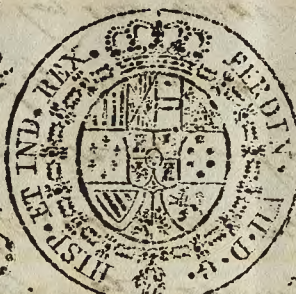 FERDIN. VII D. G.
HISP. ET IND. REX.